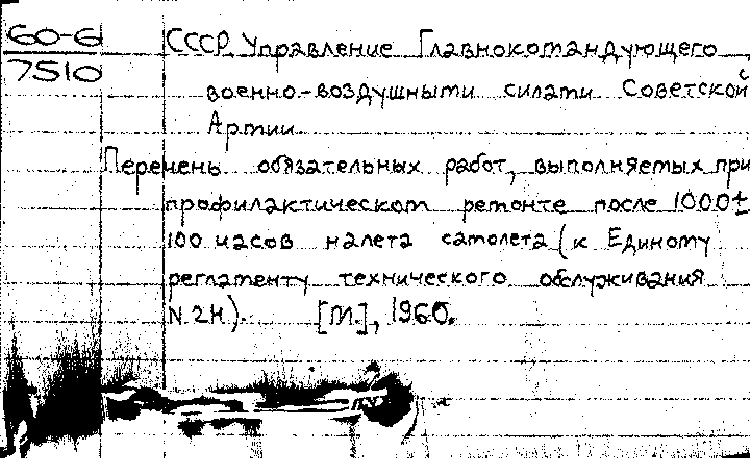 60-6
7510
СССР. Управление Главнокомандующего
военно-воздушными силами Советской
Армии.
Перечень обязательных работ, выполняемых при
профилактическом ремонте после 1000±
100 часов налета самолета (к Единому
регламенту технического обслуживания
N 2М). [М.], 1960.